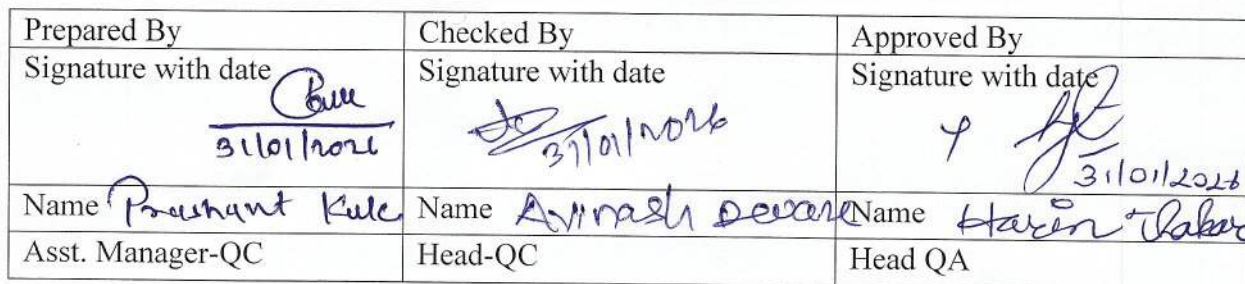 Prepared By Checked By Approved By
Signature with date Signature with date Signature with date
31/01/2026 31/01/2026 31/01/2026
Name Prashant Kale Name Avinash Deware Name Haren Thakar
Asst. Manager-QC Head-QC Head QA